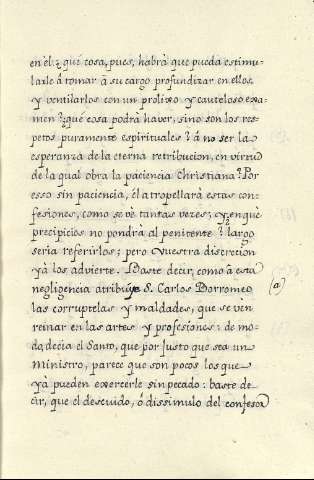 en èl: què cosa, pues, habrà que pueda estimu-
larle à tomar à su cargo profundizar en ellos,
y ventilarlos con un prolixo y cauteloso exà-
men? què cosa podrà haver, sino son los res-
petos puramente espirituales? à no ser la
esperanza de la eterna retribucion, en virtud
de la qual obra la paciencia Christiana? Por
esso sin paciencia, èl atropellarà estas con-
fesiones, como se vè tantas vezes; y en què
precipicios no pondrà al penitente? largo
seria referirlos; pero vuestra discrecion
yà los advierte. Baste decir, como à esta
negligencia atribuye S. Carlos Borromeo (a)
las corruptelas y maldades, que se vèn
reinar en las artes y profesiones: de mo-
do, decia el Santo, que por justo que sea un
Ministro, parece que son pocos los que
yà pueden exercerle sin pecado: baste de-
cir, que el descuido, ò dissimulo del confesor